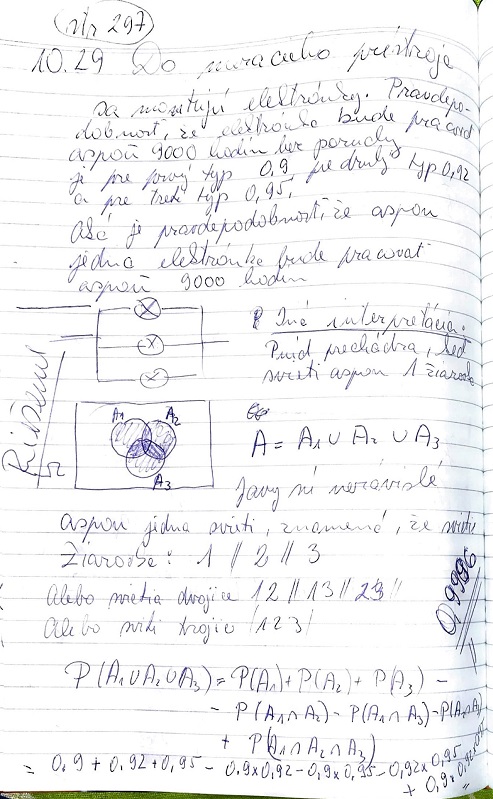 str 297
10.29 Do meracieho prístroja
sa montujú elektrónky. Pravdepo-
dobnosť, že elektrónka bude pracovať
aspoň 9000 hodín bez poruchy
je pre prvý typ 0,9, pre druhý typ 0,92
a pre tretí typ 0,95.
Aká je pravdepodobnosť, že aspoň
jedna elektrónka bude pracovať
aspoň 9000 hodín
Riešenie
Iná interpretácia.
Prúd prechádza, keď
svieti aspoň 1 žiarovka
A1 A2
A3
A = A1 ∪ A2 ∪ A3
Javy sú nezávislé
aspoň jedna svieti, znamená, že svieti
Žiarovka: 1 // 2 // 3
Alebo svietia dvojice 12 // 13 // 23 //
Alebo svieti trojica /123/
0,9996
P(A1∪A2∪A3) = P(A1) + P(A2) + P(A3) -
- P(A1∩A2) - P(A1∩A3) - P(A2∩A3)
+ P(A1∩A2∩A3)
= 0.9 + 0.92 + 0,95 - 0.9x0.92 - 0.9x0.95 - 0,92x0,95
+ 0,9x0,92x0,95